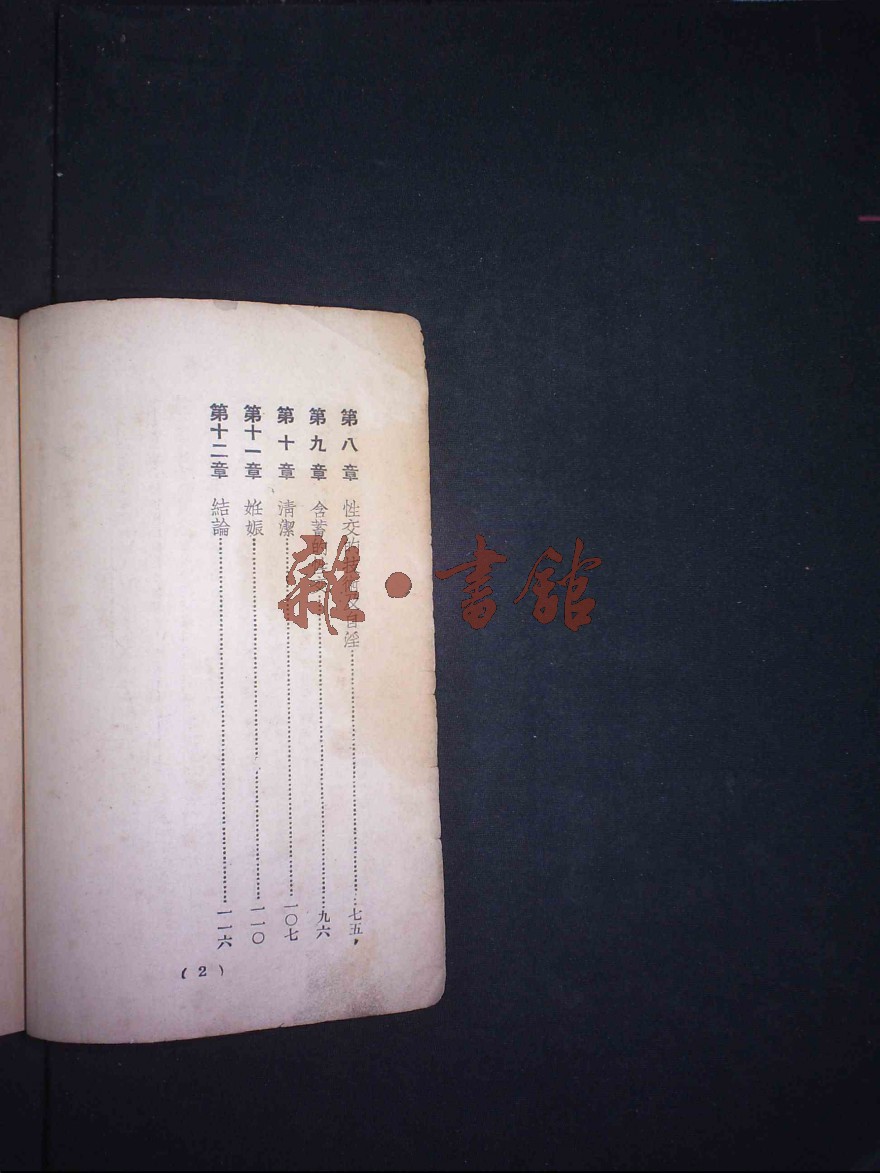 第八章 性交的 淫 七五，
第九章 含蓄的 九六
第十章 清潔 一〇七
第十一章 妊娠 一一〇
第十二章 結論 一一六
( 2 )
雜·書館